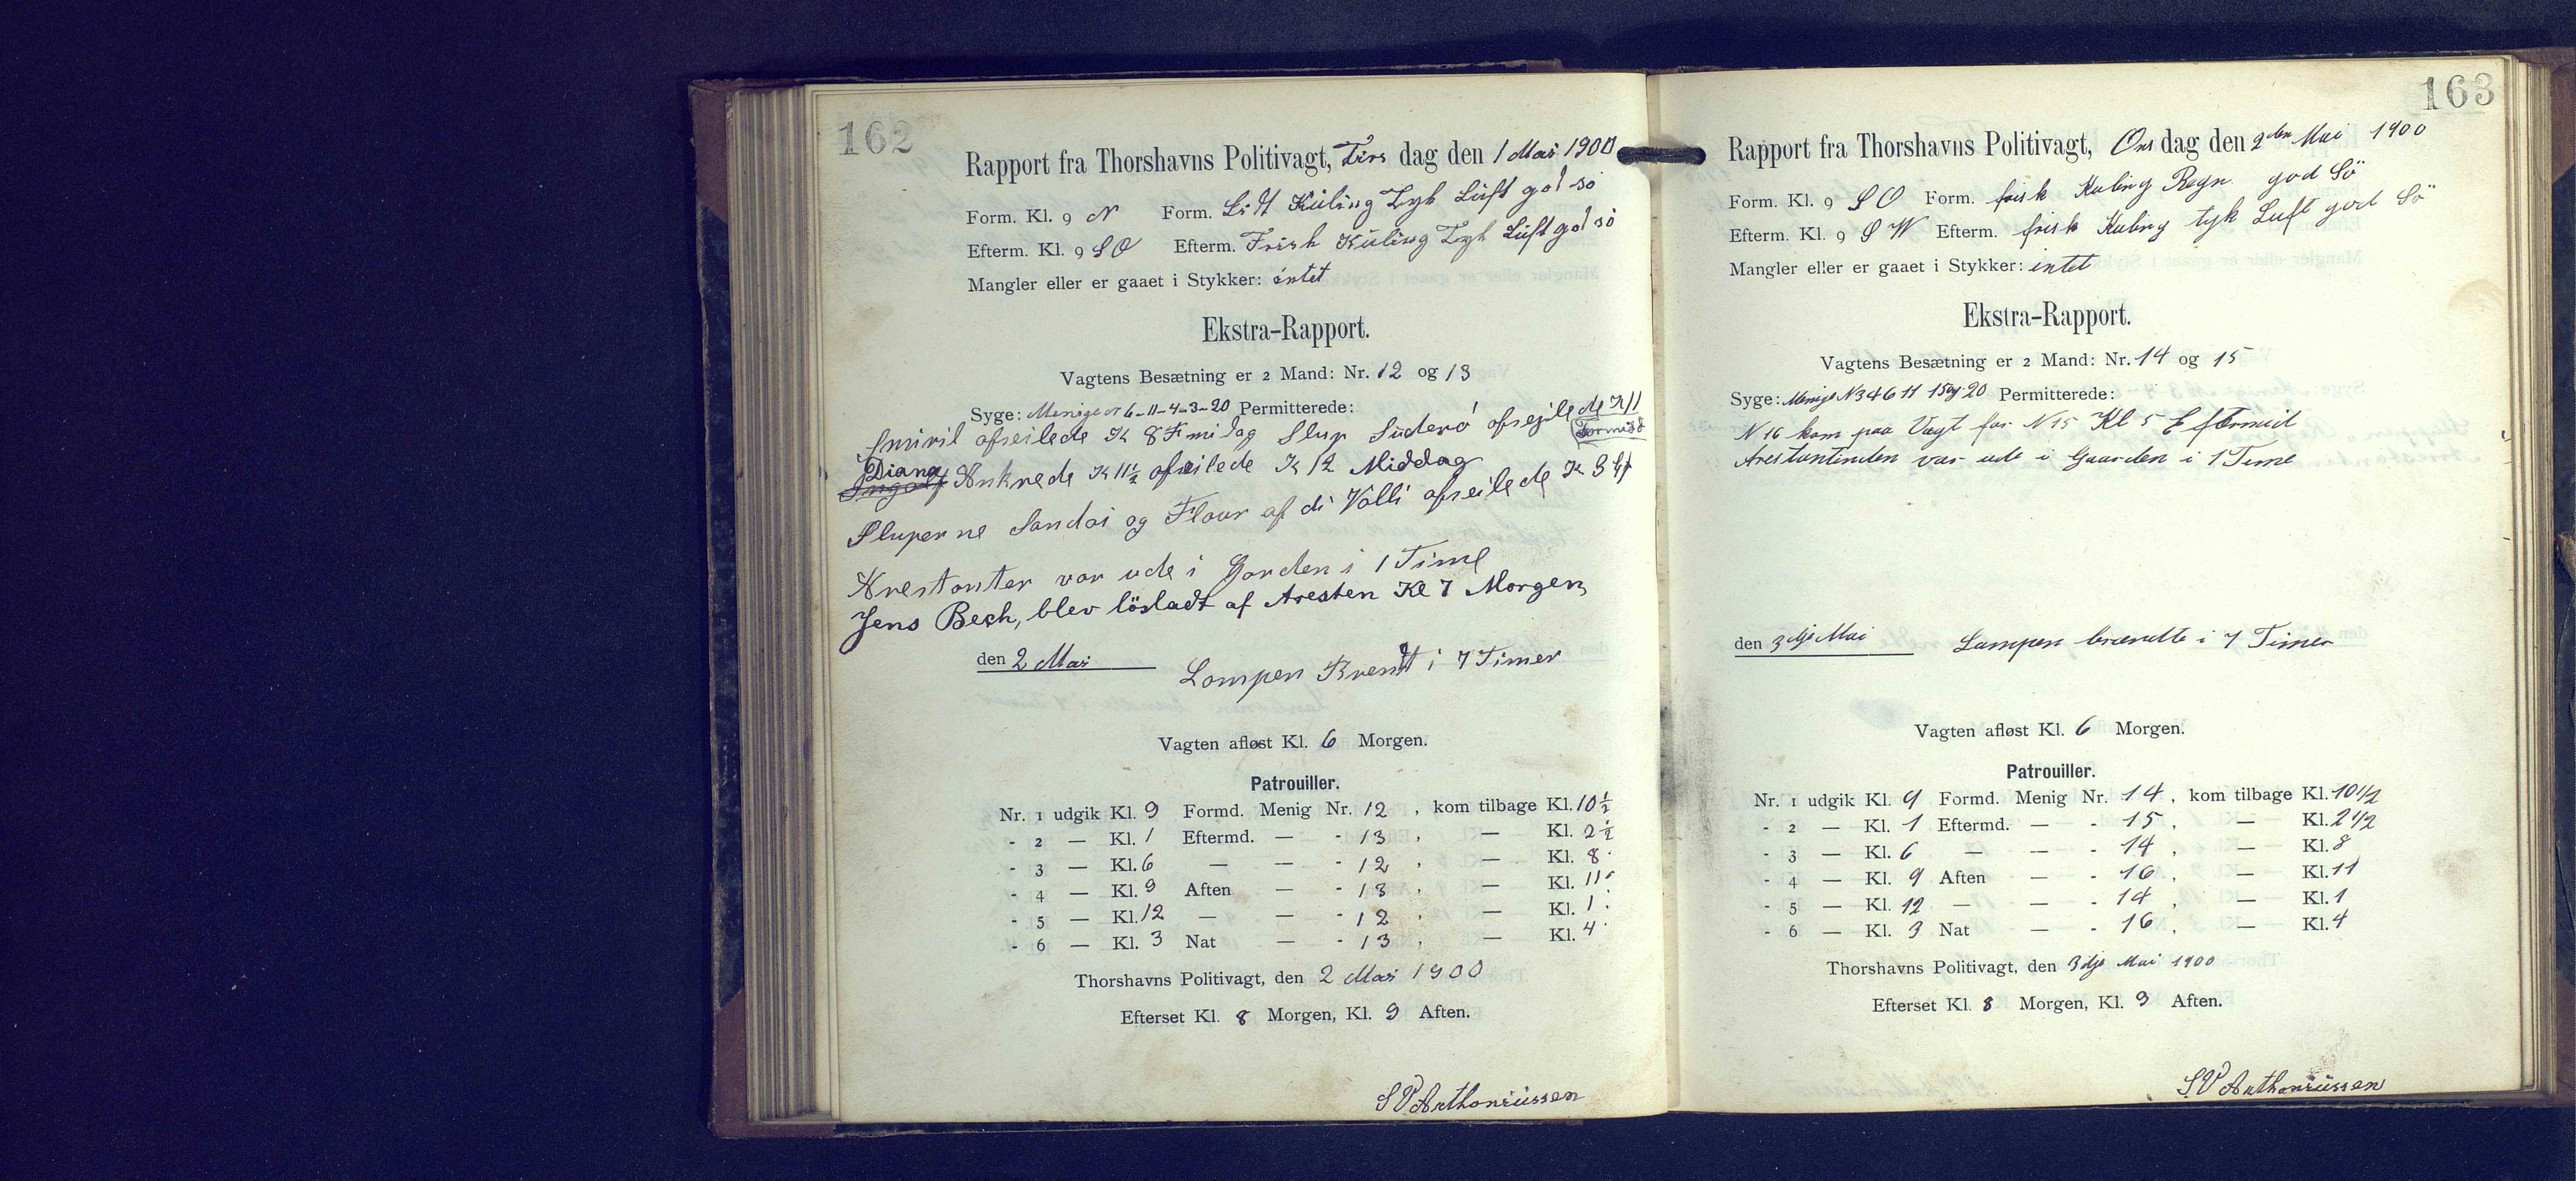 162
Rapport fra Thorshavns Politivagt, Tirs dag den 1 Mai 1900
Form. Kl. 9 N Form. Lidt Küling Tyk Lüft god sö
Efterm. Kl. 9 SO Efterm. Frisk Küling Tyk Lüft god sö
Mangler eller er gaaet i Stykker: intet
Ekstra-Rapport.
Vagtens Besætning er 2 Mand: Nr. 12 og 13
Syge: Menige nr 6-11-4-3-20 Permitterede:
Smiril afseilede K 8 Fmidag Slup Süderö afsejlede K 11 Formidd
Diana Ankrede K 11½ afseilede K 12 Middag
Sluperne Sandoi og Flour af di Valli afseilede K 3 Ef
Arestanter var ude i Gorden i 1 Time
Jens Bech, blev lösladt af Aresten Kl 7 Morgen
den 2 Mai Lampen Brendt i 7 Timer
Vagten afløst Kl. 6 Morgen.
Patrouiller.
Nr. 1 udgik Kl. 9 Formd. Menig Nr. 12, kom tilbage Kl. 10½
- 2 — Kl. 1 Eftermd. — - 13, — Kl. 2½
- 3 — Kl. 6 — — - 12, — Kl. 8
- 4 — Kl. 9 Aften — - 13, — Kl. 11
- 5 — Kl. 12 — — - 12, — Kl. 1
- 6 — Kl. 3 Nat — - 13, — Kl. 4
Thorshavns Politivagt, den 2 Mai 1900
Efterset Kl. 8 Morgen, Kl. 9 Aften.
SV Anthoniüssen
163
Rapport fra Thorshavns Politivagt, Ons dag den 2den Mai 1900
Form. Kl. 9 SO Form. frisk Kuling Regn god Sö
Efterm. Kl. 9 SW Efterm. frisk Kuling tyk Luft god Sö
Mangler eller er gaaet i Stykker: intet
Ekstra-Rapport.
Vagtens Besætning er 2 Mand: Nr. 14 og 15
Syge: Menige N 3 4 6 11 15 og 20 Permitterede:
N 16 kom paa Vagt for N 15 Kl 5 Eftermid
Arestantinden var ude i Gaarden i 1 Time
den 3dje Mai Lampen brændte i 7 Timer
Vagten afløst Kl. 6 Morgen.
Patrouiller.
Nr. 1 udgik Kl. 9 Formd. Menig Nr. 14, kom tilbage Kl. 10 1/2
- 2 — Kl. 1 Eftermd. — - 15, — Kl. 2 1/2
- 3 — Kl. 6 — — - 14, — Kl. 8
- 4 — Kl. 9 Aften — - 16, — Kl. 11
- 5 — Kl. 12 — — - 14, — Kl. 1
- 6 — Kl. 3 Nat — - 16, — Kl. 4
Thorshavns Politivagt, den 3dje Mai 1900
Efterset Kl. 8 Morgen, Kl. 9 Aften.
SV Anthoniüssen